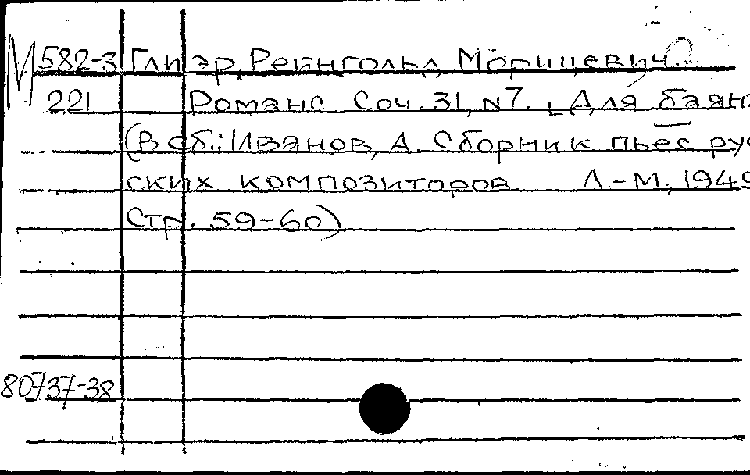 М582-3 Глиэр, Рейнгольд Морицевич.
221 Романс Соч. 31, №7. [Для баян
(В сб.: Иванов, А. Сборник пьес рус
ских композиторов Л-М, 1949
Стр. 59-60)
80737-38